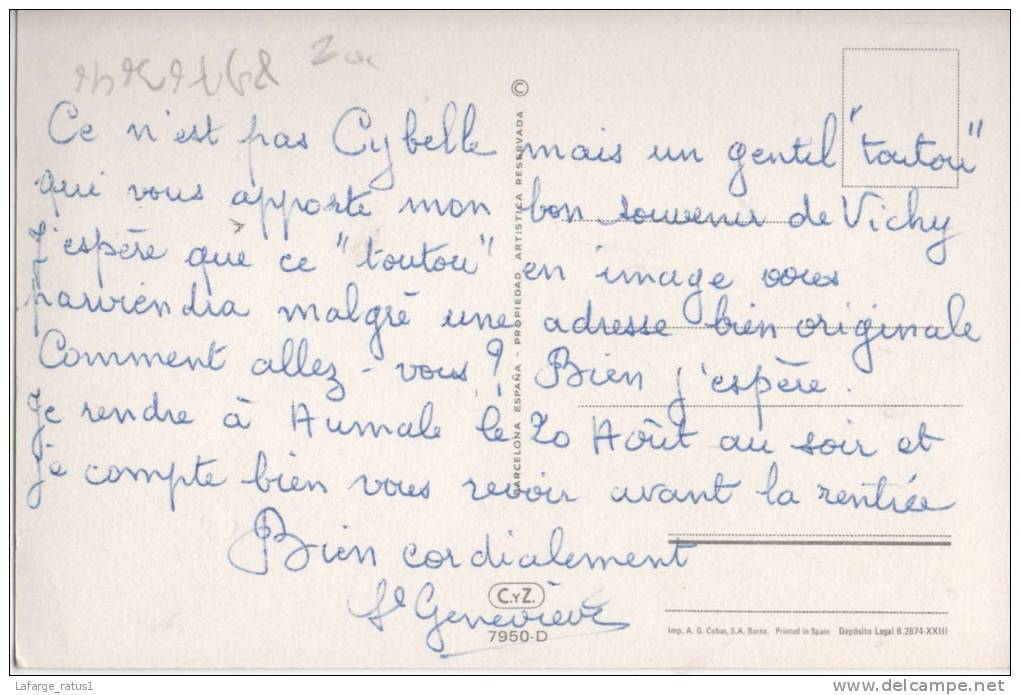 Zoe
Ce n'est pas Cybelle mais un gentil "toutou"
qui vous apporte mon bon souvenir de Vichy
J'espère que ce "toutou" en image vous
parviendra malgré une adresse bien originale
Comment allez-vous? Bien j'espère.
Je rendre à Aumale le 20 Août au soir et
je compte bien vous revoir avant la rentrée
Bien cordialement
Sr Geneviève
©
BARCELONA ESPAÑA - PROPIEDAD ARTISTICA RESERVADA
C.YZ.
7950-D
Imp. A. G. Cobas, S.A. Barna. Printed in Spain Depósito Legal B.2874-XXIII
Lafarge_ratus1
www.delcampe.net